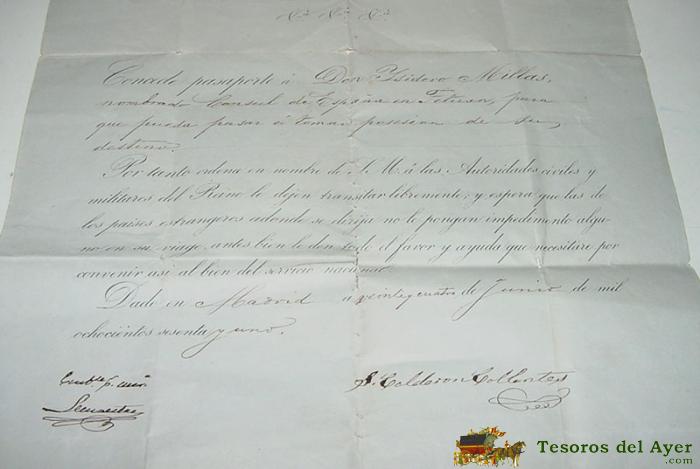 &ª &ª &ª
Concedo pasaporte á Don Ysidoro Millas,
nombrado Consul de España en Tetuan, para
que pueda pasar á tomar posesion de su
destino.
Por tanto ordena en nombre de S. M. á las Autoridades civiles y
militares del Reino le dejen transitar libremente; y espera que las de
los paises estrangeros adonde se dirija no le pongan impedimento algu-
no en su viage, antes bien le den todo el favor y ayuda que necesitare por
convenir asi al bien del servicio nacional.
Dado en Madrid a veinte y cuatro de Junio de mil
ochocientos sesenta y uno.
S. Calderon Collantes
Tesoros del Ayer
.com